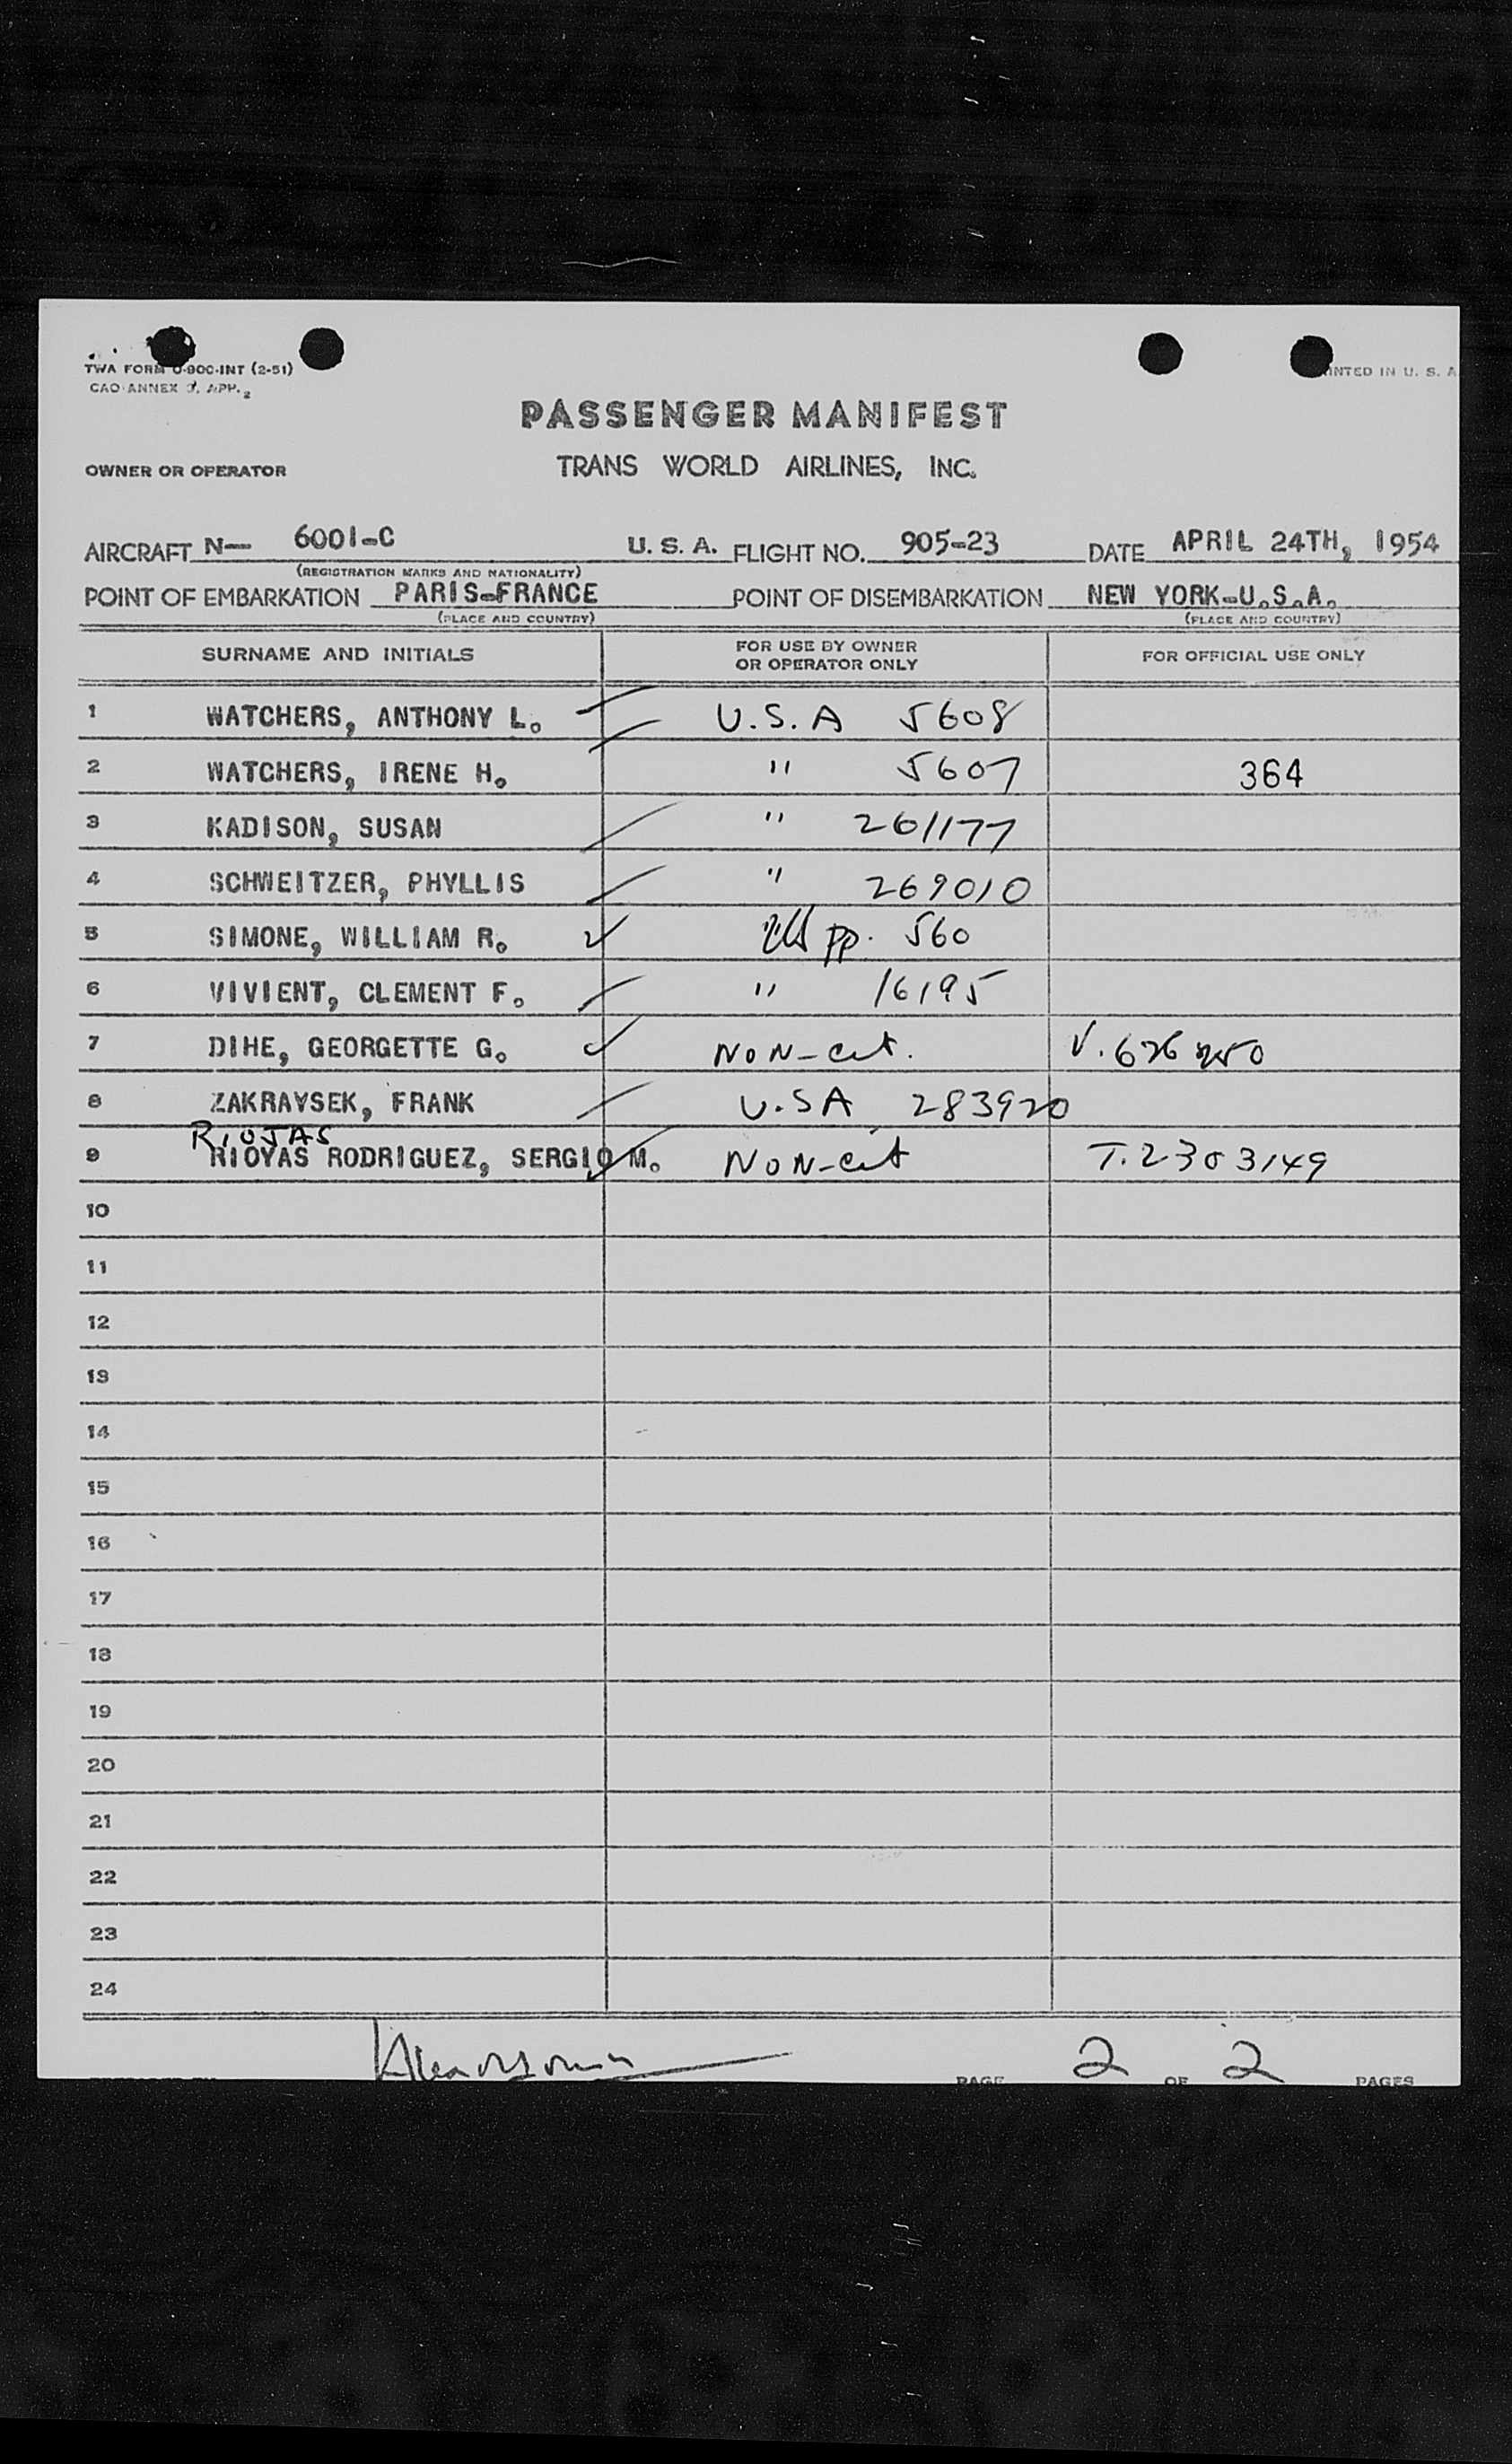 TWA FORM O-900-INT (2-51)
CAO ANNEX 9, APP. 2
PRINTED IN U. S. A
PASSENGER MANIFEST
OWNER OR OPERATOR TRANS WORLD AIRLINES, INC.
AIRCRAFT N— 6001-C U. S. A. FLIGHT NO. 905-23 DATE APRIL 24TH, 1954
(REGISTRATION MARKS AND NATIONALITY)
POINT OF EMBARKATION PARIS-FRANCE POINT OF DISEMBARKATION NEW YORK-U.S.A.
(PLACE AND COUNTRY) (PLACE AND COUNTRY)
SURNAME AND INITIALS FOR USE BY OWNER OR OPERATOR ONLY FOR OFFICIAL USE ONLY
1 WATCHERS, ANTHONY L. U.S.A 5608
2 WATCHERS, IRENE H. " 5607 364
3 KADISON, SUSAN " 261177
4 SCHWEITZER, PHYLLIS " 269010
5 SIMONE, WILLIAM R. US pp. 560
6 VIVIENT, CLEMENT F. " 16195
7 DIHE, GEORGETTE G. NON-cit. V.
8 ZAKRAYSEK, FRANK U.SA 283920
RIOJAS
9 RIOYAS RODRIGUEZ, SERGIO M. NON-cit T.2303149
10
11
12
13
14
15
16
17
18
19
20
21
22
23
24
PAGE 2 OF 2 PAGES